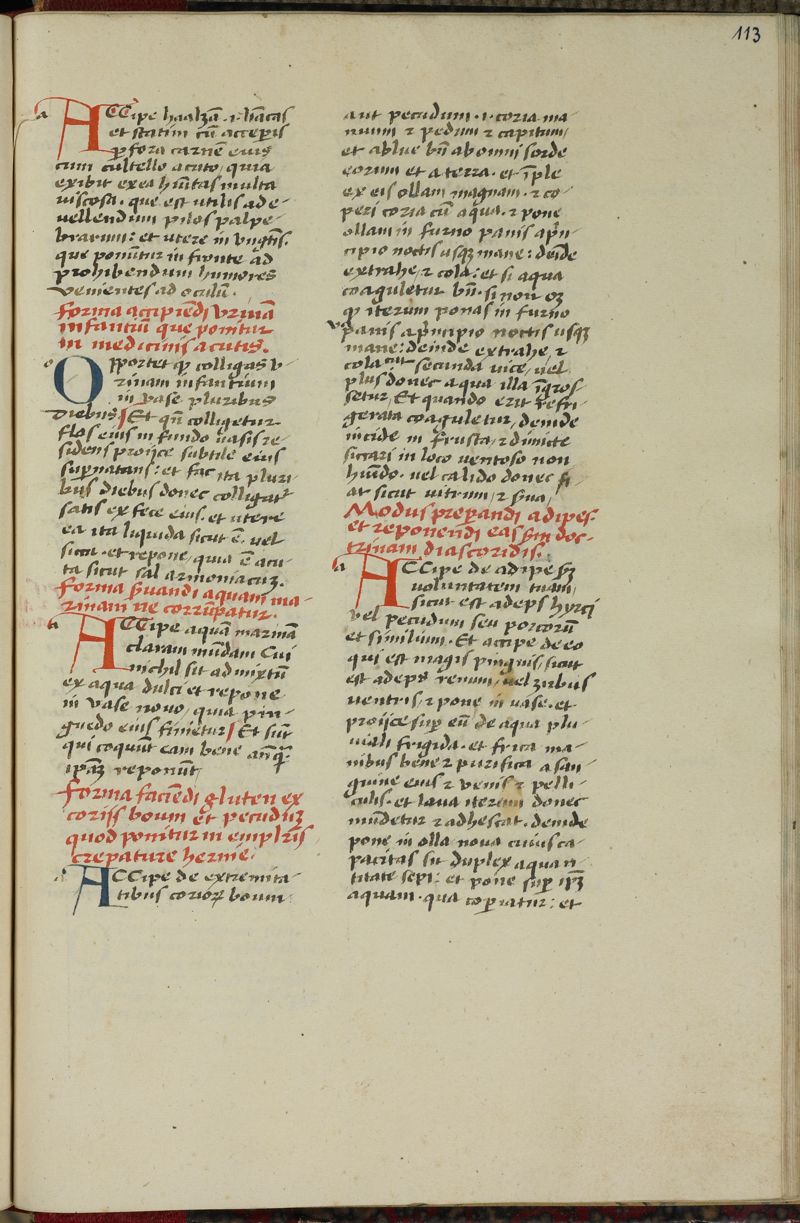 113
a
ACcipe haalzã .i. lĩacas
et statim cũ acceperis
ꝑfora carnẽ eius
cum cultello acuto, quia
exibit ex ea hũitas multa
viscosa . que est utilis ad e-
vellendum pilos palpe-
brarum : et utere in vngtĩs.
que ponũtur in fronte ad
prohibendum humores
venientes ad oculũ .
Forma accipiẽdi vrinã
infantiũ que ponitur
in medicinis acutis.
o
Opportet ꝙ colligas v-
rinam infantium
in vase pluribus
diebus / Et qñ colligetur
flos eius in fundo vasis re-
sidens proijce subtile eius
supernatans : et fac ita pluri
bus diebus donec colligat᷑
satis ex fece eius . et utere
ea ita liquida sicut ẽ . vel
sicca . et repone, quia ẽ acu-
ta sicut sal armoniacuz.
Forma ẜuandi aquam ma-
rinam ne corrũpatur .
a
ACcipe aquã marinã
claram mũdam Cui
nichil sit admixtũ
ex aqua dulci et repone
in vase novo, quia pin-
guedo eius finietur / Et sũt
qui coquũt eam bene anꝙ
ipãz reponũt,
Forma faciẽdi gluten ex
corijs boum et pecudũz
quod ponitur in emplrĩs
crepature hernie .
a
ACcipe de extremita-
tibus corioꝝ boum
aut pecudum .i. coria ma-
nuum ⁊ pedum ⁊ capitum,
et ablue bñ ab omni sorde
eorum et a terra . et ĩple
ex eis ollam magnam . ⁊ co-
peri coria cũ aqua . ⁊ pone
ollam in furno panis a prĩ-
cipio noctis usqꝫ mane : deĩde
extrahe, ⁊ cola : et si aqua
coaguletur bñ . si non oꝫ
ꝙ iterum ponas in furno
panis a prĩcipio noctis usqꝫ
mane : deinde extrahe, ⁊
cola secunda vice, vel
plus donec aqua illa ĩgros-
setur, Et quando erit refri-
gerata coaguletur, deinde
incide in frusta, ⁊ dimitte
siccari in loco ventoso non
hũido . vel calido donec fi-
at sicut vitrum, ⁊ ẜua,
Modus preparandi adipes.
et reponendi eas ẜm doc-
trinam diascoridis .
a
ACcipe de adipe ẜm
voluntatem tuam,
sicut est adeps hyrci
vel pecudum seu porcorũ
et similium . Et accipe de eo
qui est magis pinguis, sicut
est adeps renum, vel zirbus
ventris, ⁊ pone in vase . et
proijce super eũ de aqua plu-
viali frigida . et frica ma-
nibus bene ⁊ purifica a san-
guine eius ⁊ venis ⁊ pelli-
culis . et lava iterum donec
mũdetur ⁊ adhescat . deinde
pone in olla nova cuius ca-
pacitas sit duplex a quan-
titate sepi : et pone super ipm̃
aquam . qua coperiatur : et